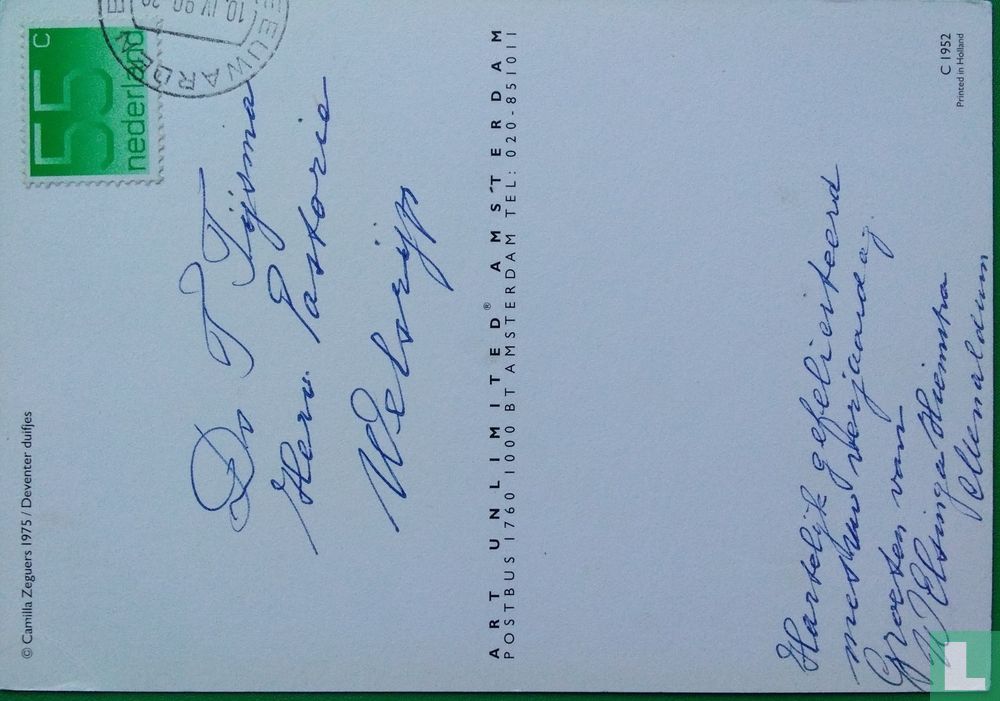 © Camilla Zeguers 1975 / Deventer duifjes
55 c
nederland
LEEUWARDEN
10.IV.90
Ds T Tijsma
Herv. Pastorie
Welsrijp
ART UNLIMITED® AMSTERDAM
POSTBUS 1760 1000 BT AMSTERDAM TEL: 020-851011
Hartelijk gefeliciteerd
met uw verjaardag.
Groeten van
Elsinga Hiemstra
Menaldum
C 1952
Printed in Holland
L